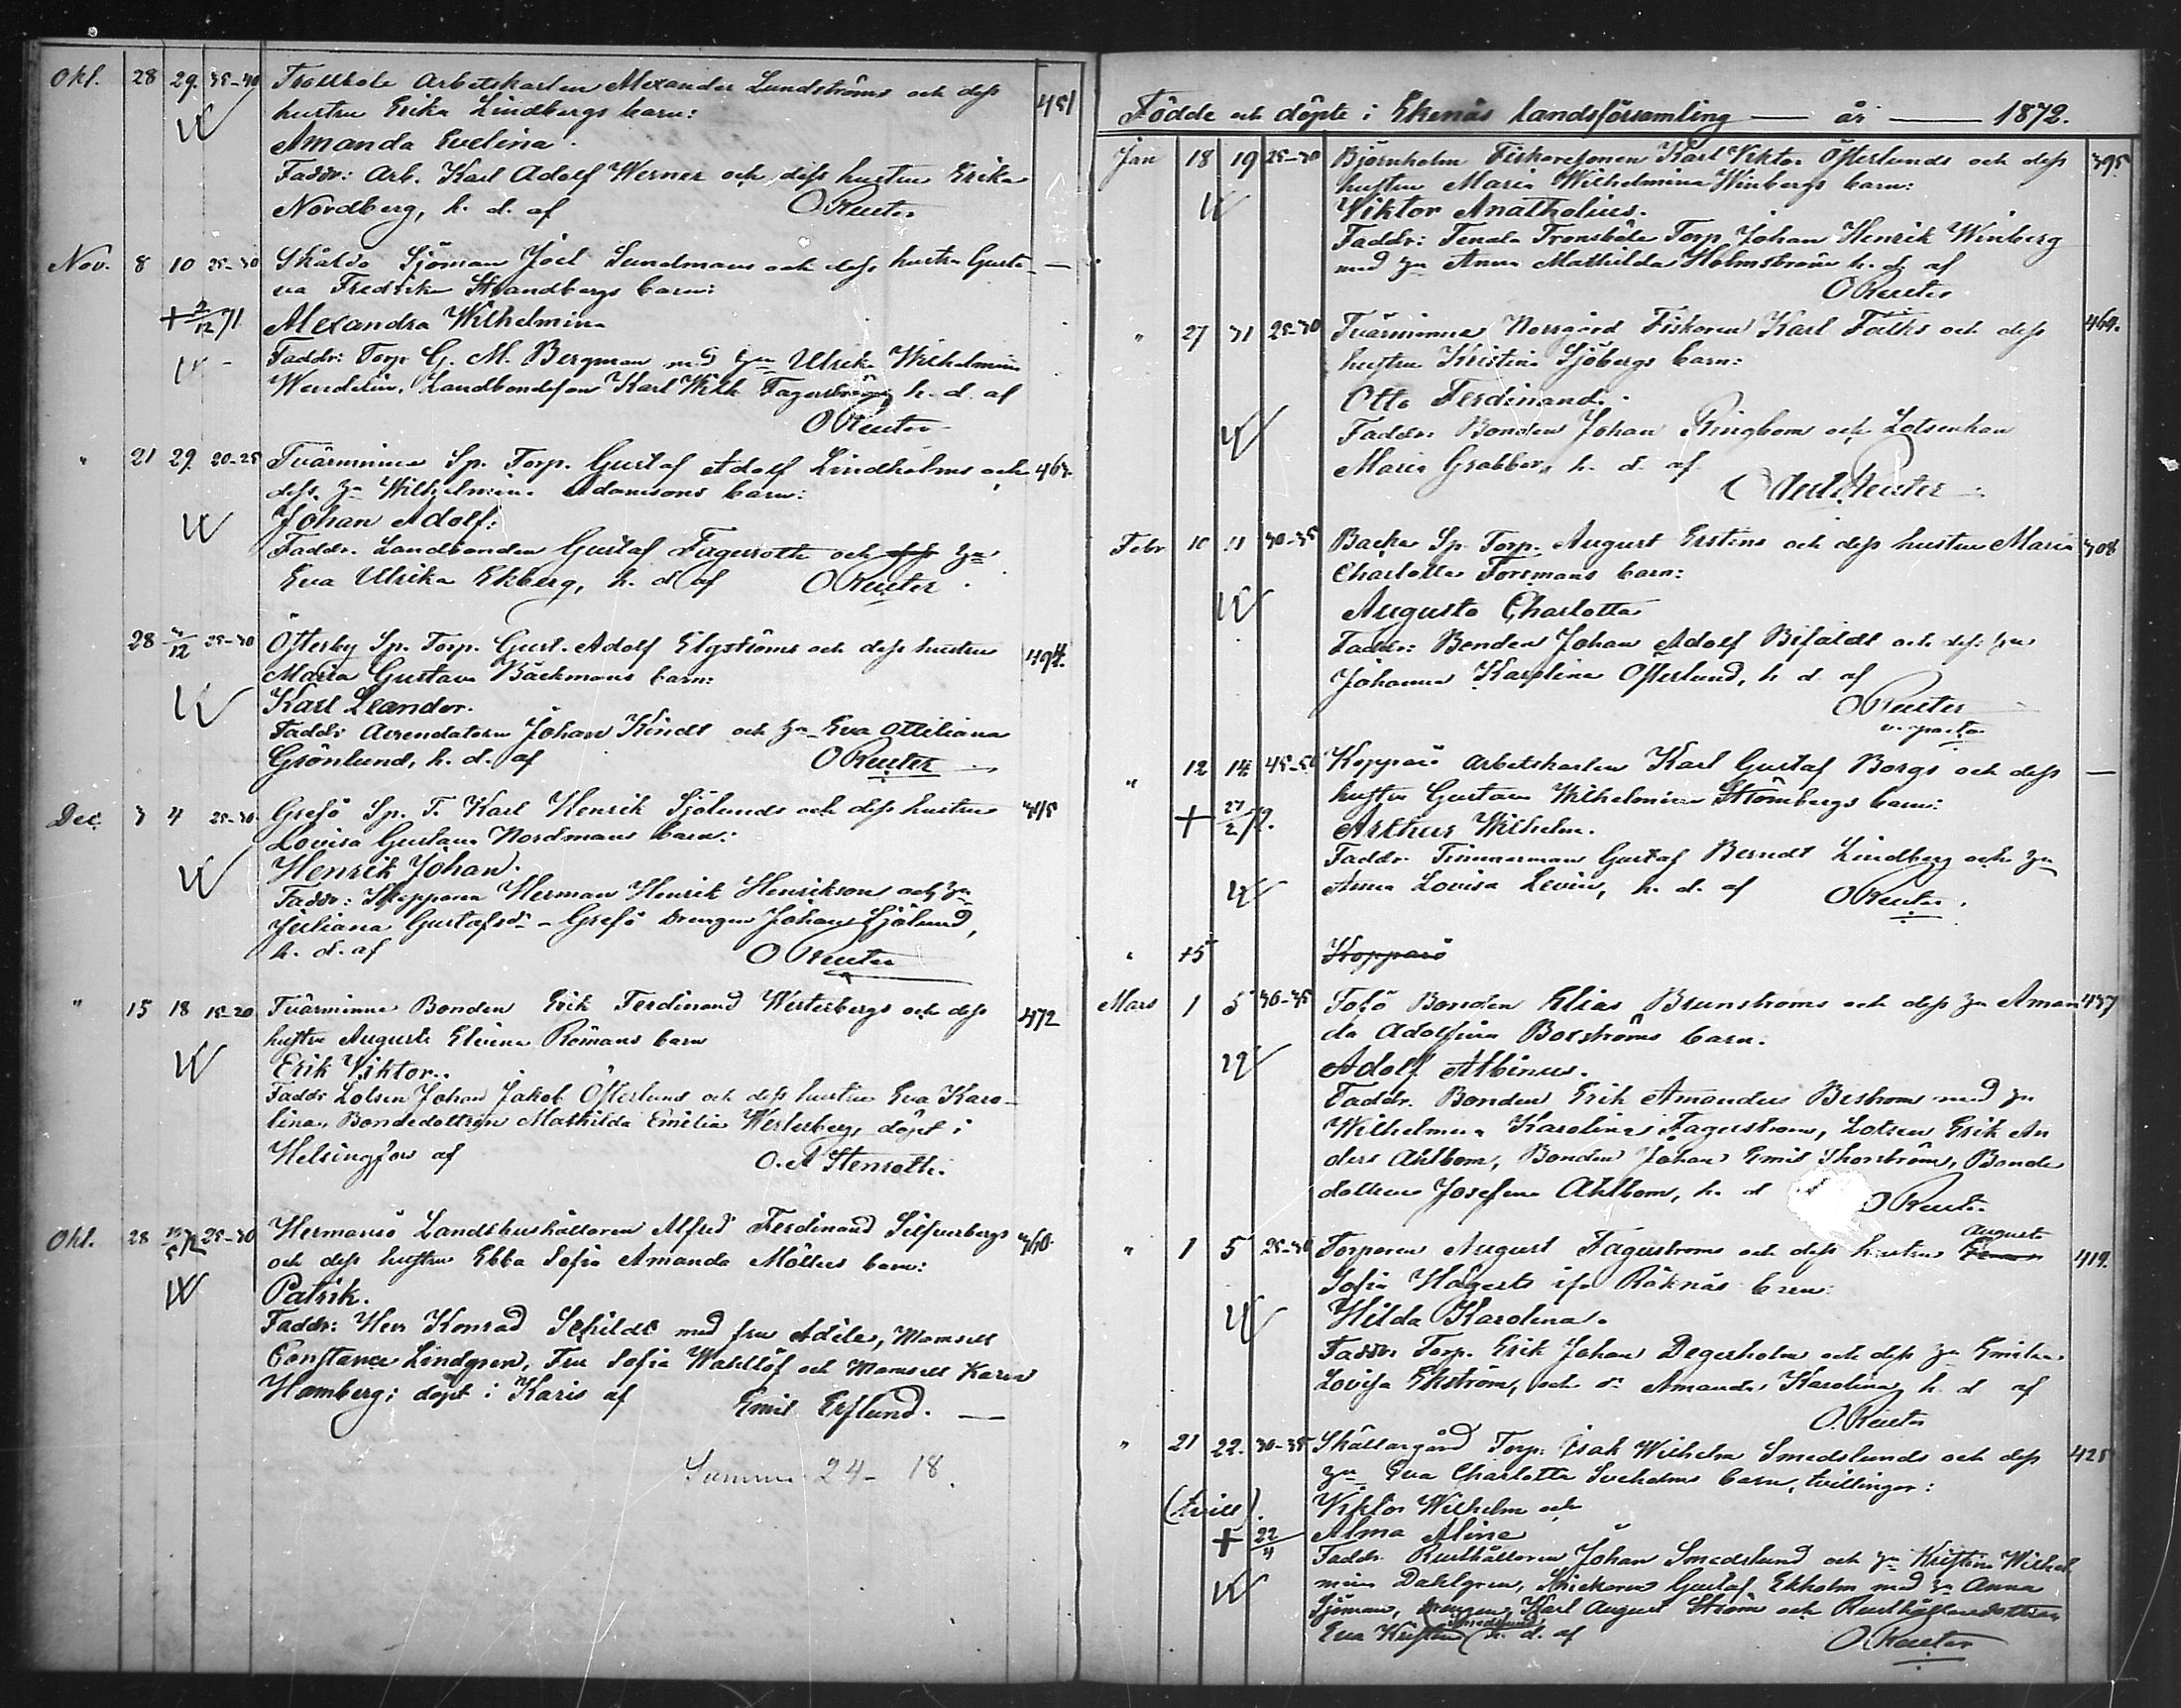 Okt. 28 29. 35-40 Trollböle Arbetskarlen Alexander Lundströms och dess 451
hustru Erika Lindbergs barn:
Amanda Evelina.
Faddr: Arb. Karl Adolf Werner och dess hustru Erika
Nordberg, h. d. af O Reuter
Nov. 8 10 25-30 Skåldö Sjöman Joel Sundmans och dess hustru Gusta- —
va Fredrika Strandbergs barn:
+ 2/12 71 Alexandra Wilhelmina
Faddr: Torp. G. M. Bergman med hu Ulrika Wilhelmina
Wendelin, Landbondeson Karl Wilh Fagerström, h. d. af
O Reuter
" 21 29. 20-25 Tvärminne Sp. Torp. Gustaf Adolf Lindholms och
dess hu Wilhelmina Adamsons barn:
Johan Adolf.
Faddr. Landbonden Gustaf Fageroth och dess hu
Eva Ulrika Ekberg, h. d. af O Reuter.
28 /12 25-30 Österby Sp. Torp. Gust. Adolf Elgströms och dess hustru
Maria Gustava Bäckmans barn:
Karl Leander.
Faddr Arrendatorn Johan Kindt och hu Eva Ottiliana
Grönlund, h. d. af O Reuter
Dec. 3 4 25-30 Grefö Sp. T. Karl Henrik Sjölunds och dess hustru
Lovisa Gustava Nordmans barn:
Henrik Johan.
Faddr: Skepparen Herman Henrik Henrikson och hu
Juliana Gustafsdr - Grefö Drengen Johan Sjölund,
h. d. af O Reuter
" 15 18 15-20 Tvärminne Bonden Erik Ferdinand Westerbergs och dess 472
hustru Augusta Elvina Römans barn
Erik Viktor.
Faddr Lotsen Johan Jakob Österlund och dess hustru Eva Karo-
lina, Bondedottren Mathilda Emilia Westerberg, döpt i
Helsingfors af O. A Stenroth.
Okt. 28 /5 72 25-30 Hermansö Landtbushållaren Alfred Ferdinand Silfverbergs
och dess hustru Ebba Sofia Amanda Möllers barn:
Patrik.
Faddr: Herr Konrad Schildt med fru Adèle, Mamsell
Constance Lindgren, Fru Sofia Wahllöf och Mamsell Karin
Homberg; döpt i Karis af Emil Erflund. —
Summa 24- 18.
Födde och döpte i Ekenäs landsförsamling — år — 1872.
Jan 18 19 25-30 Björnholm Fiskaresonen Karl Viktor Österlunds och dess 395
hustru Maria Wilhelmina Winbergs barn:
Viktor Anatholius.
Faddr: Tenala Tronsböle Torp. Johan Henrik Winberg
med hu Anna Mathilda Holmström h. d. af
O Reuter
" 27 31 25-30 Tvärminne Norrgård Fiskaren Karl Falks och dess 460.
hustru Kristina Sjöbergs barn:
Otto Ferdinand.
Faddr: Bonden Johan Ringbom och Lotsenkan
Maria Grabber, h. d. af
Reuter
Febr 10 11 30-35 Backa Sp. Torp. August Erstens och dess hustru Maria 308
Charlotta Forsmans barn:
Augusta Charlotta
Faddr: Bonden Johan Adolf Bifaldt och dess hu
Johanna Karolina Österlund, h. d. af
O Reuter
v. pastor
" 12 14 45-50 Kopparö Arbetskarlen Karl Gustaf Borgs och dess —
hustru Gustava Wilhelmina Strömbergs barn:
+ 27/2 72. Arthur Wilhelm.
Faddr. Timmerman Gustaf Berndt Lindberg och hu
Anna Lovisa Levin, h. d. af O Reuter.
" 15 Kopparö
Mars 1 5 30-35 Totö Bonden Elias Brunströms och dess hu Aman 437
da Adolfina Boströms barn.
Adolf Albinus.
Faddr. Bonden Erik Amandus Boström med hu
Wilhelmina Karolina Fagerström, Lotsen Erik An
ders Ahlbom, Bonden Johan Emil Thorström, Bonde
dottren Josefina Ahlbom, h. d O Reuter.
" 1 5 25-30 Torparen August Fagerströms och dess hustru Augusta 419.
Sofia Hägerts ifr Räknäs barn:
Hilda Karolina.
Faddr Torp. Erik Johan Degerholm och dess hu Emilia
Lovisa Ekström, och dr Amanda Karolina, h. d af
O. Reuter
" 21 22. 30-35 Skällargård Torp. Isak Wilhelm Smedslunds och dess 425
hu Eva Charlotta Sveholms barn, tvillingar:
(tvill). Viktor Wilhelm och
+ 22/4 Alma Alina
Faddr. Rusthållaren Johan Smedslund och hu Kristina Wilhel
mina Dahlgren, Snickaren Gustaf Ekholm med hu Anna
Sjöman, Drengen Karl August Ström och Rusthållaredottren
Eva Kristina Smedslund h. d. af O. Reuter